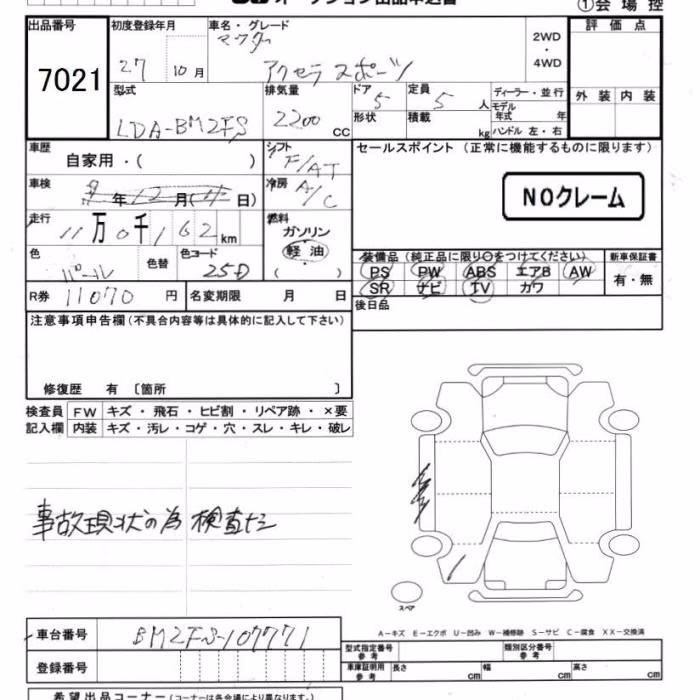 ①会場控
出品番号 初度登録年月 車名・グレード 2WD・4WD 評価点
7021 27 10月 マツダ アクセラ スポーツ
外装 内装
型式 排気量 ドア 定員 ディーラー・並行
LDA-BM2FS 2200 CC 5 5人 モデル年式 年
形状 積載 kg ハンドル 左・右
車歴 シフト セールスポイント (正常に機能するものに限ります)
自家用・( ) F/AT
車検 年12月( 日) 冷房 A/C
NOクレーム
走行 11万0千162km 燃料 ガソリン 軽油 ( )
色 パール 色替 色コード 25D
装備品(純正品に限り○をつけてください) 新車保証書
PS PW ABS エアB AW 有・無
SR ナビ TV カワ
R券 11070円 名変期限 月 日 後日品
注意事項申告欄(不具合内容等は具体的に記入して下さい)
修復歴 有 〔箇所 〕
検査員 FW キズ・飛石・ヒビ割・リペア跡・×要
記入欄 内装 キズ・汚レ・コゲ・穴・スレ・キレ・破レ
事故現状の為 検査ナシ
スペア
A-キズ E-エクボ U-凹み W-補修跡 S-サビ C-腐食 XX-交換済
車台番号 BM2FS-107771
型式指定番号参考 類別区分番号参考
登録番号
車庫証明用参考 長さ cm 幅 cm 高さ cm
希望出品コーナー(コーナーは各会場により異なります。)